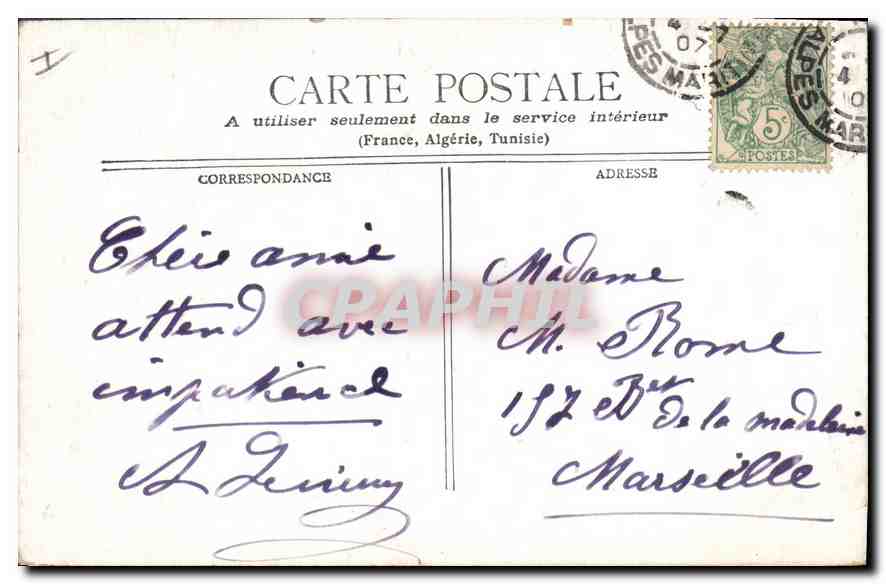 CARTE POSTALE
A utiliser seulement dans le service intérieur
(France, Algérie, Tunisie)
CORRESPONDANCE
Chère amie
attend avec
impatience
A
ADRESSE
Madame
M. Rome
157 Bet de la madeleine
Marseille
5c
POSTES
4
07
PES MARITIM
ALPES MAR
4
CPAPHIL